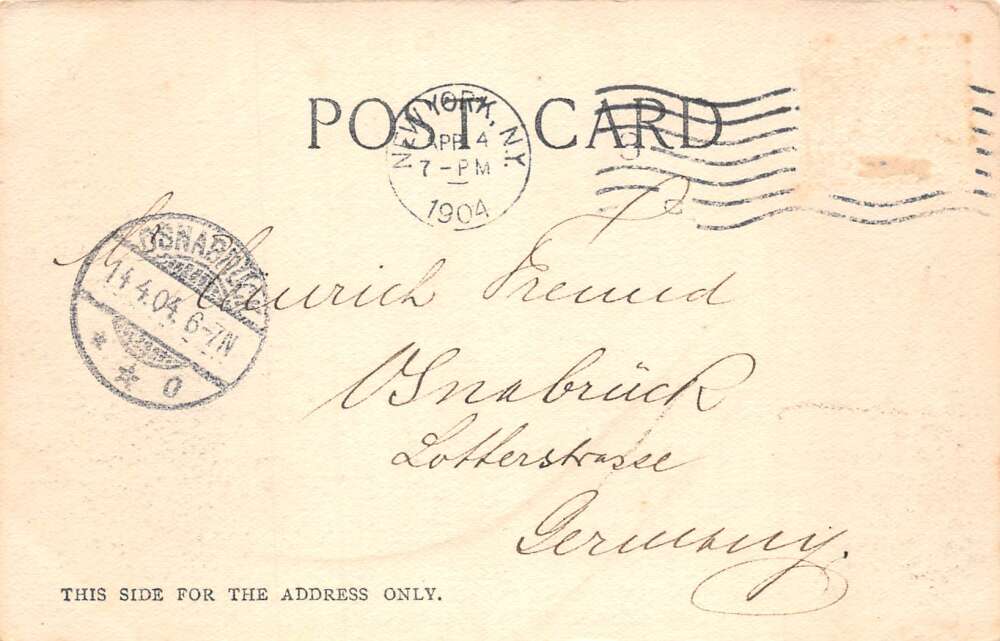 POST CARD
NEW YORK, N.Y.
APR 4
7-PM
1904
3
OSNABRÜCK
14.4.04. 6-7N
* * o
Heinrich Freund
Osnabrück
Lotterstrasse
Germany.
THIS SIDE FOR THE ADDRESS ONLY.